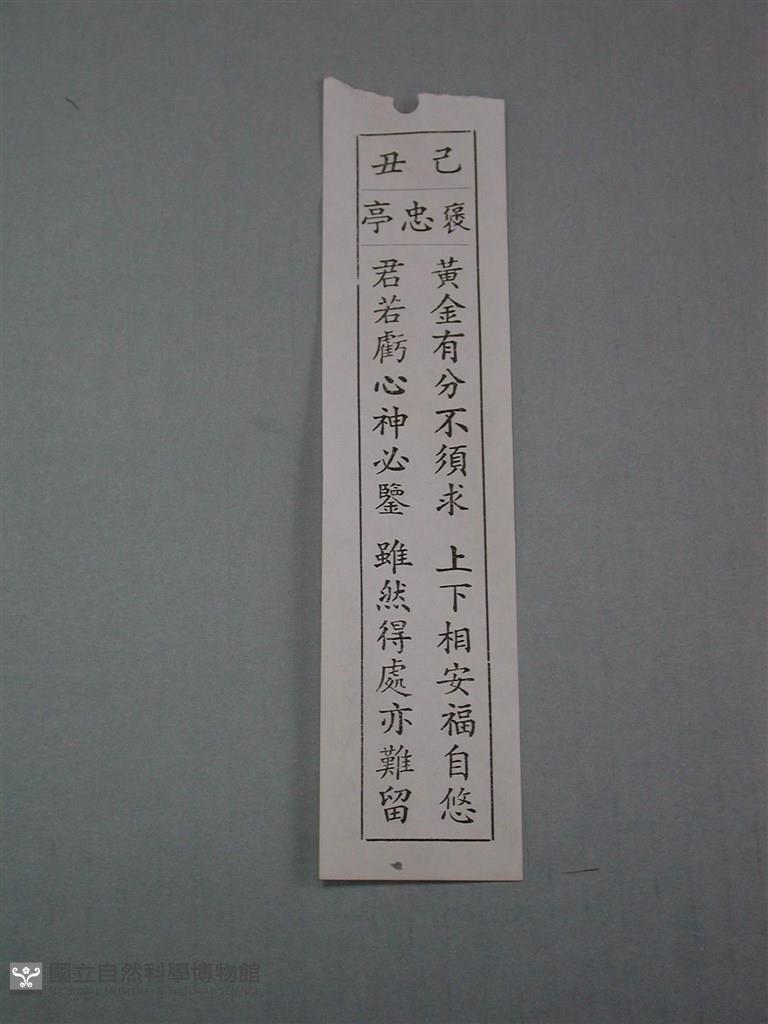 己丑
褒忠亭
黃金有分不須求 上下相安福自悠
君若虧心神必鑒 雖然得處亦難留
國立自然科學博物館
NATIONAL MUSEUM OF NATURAL SCIENCE